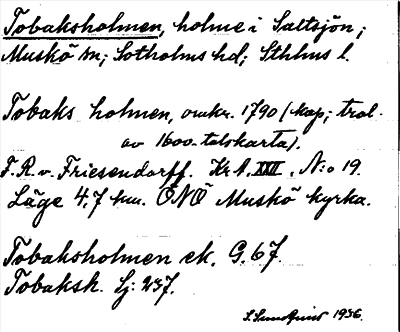 Tobaksholmen, holme i Saltsjön;
Muskö sn; Sotholms hd; Sthlms l.
Tobaks holmen, omkr. 1790 (kop; trol.
av 1600-talskarta).
F.R. v. Friesendorff. Kr A. XXI. N:o 19.
Läge 4,7 km. ÖNÖ Muskö kyrka.
Tobaksholmen ek. G. 67.
Tobaksh. Lj: 237.
1936